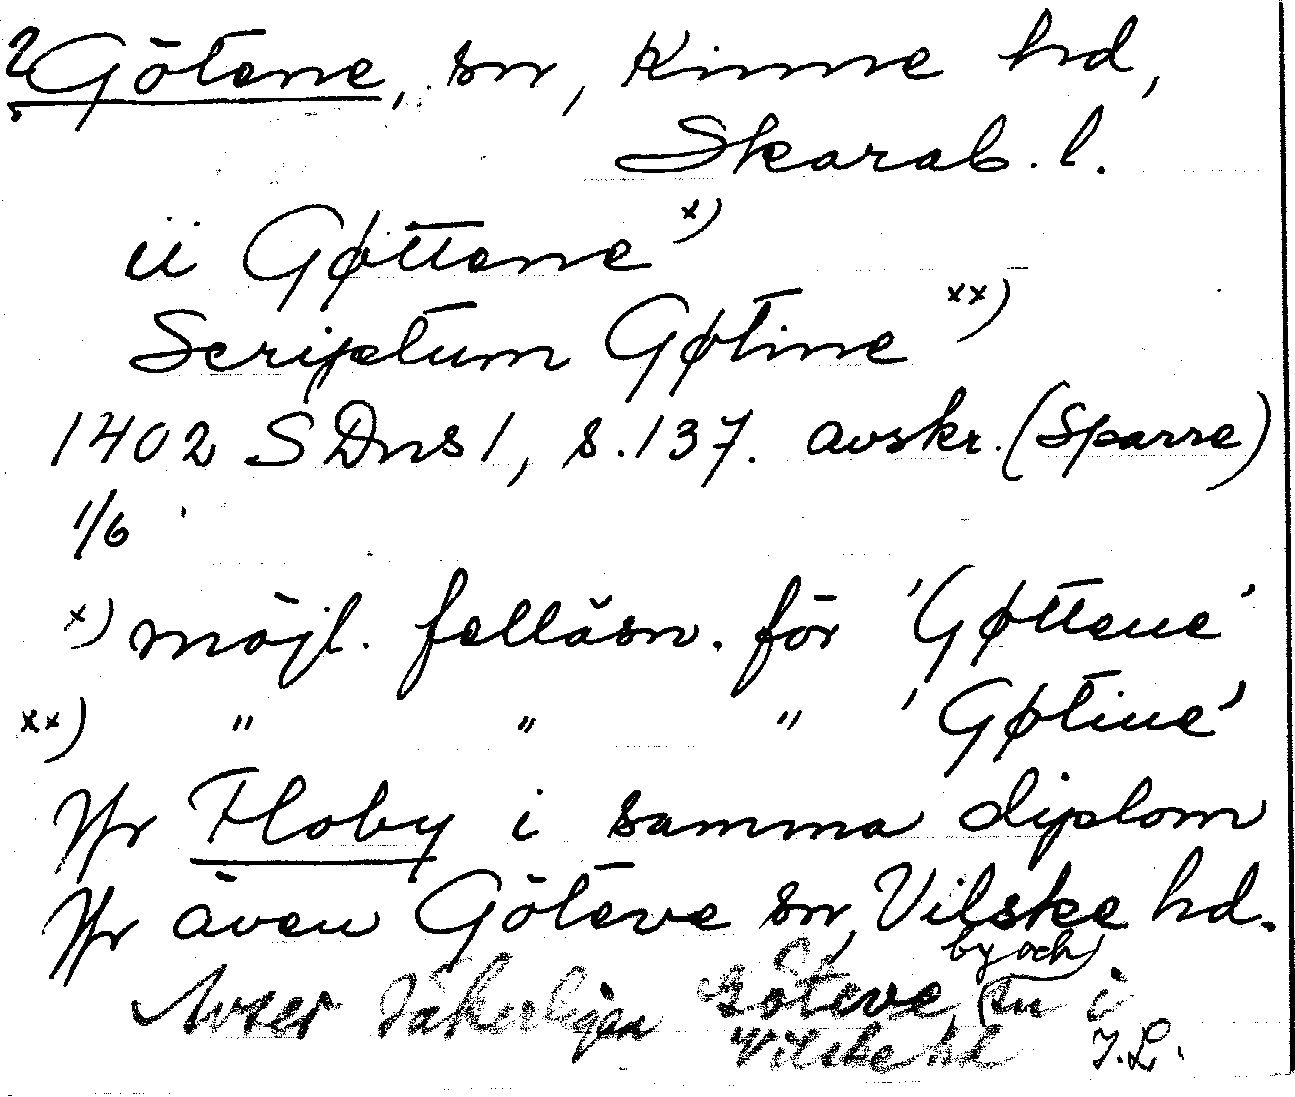 ? Götene, sn, Kinne hd,
Skarab. l.
ii Gøttene x)
Scriptum Gøtine xx)
1402 SDns 1, s. 137. avskr. (Sparre)
1/6
x) möjl. felläsn. för 'Gøtteue'
xx) " " " 'Gøtiue'
Jfr Floby i samma diplom
Jfr även Göteve sn, Vilske hd.
by och
Avser säkerligen Göteve, sn i
Vilske hd J.L.